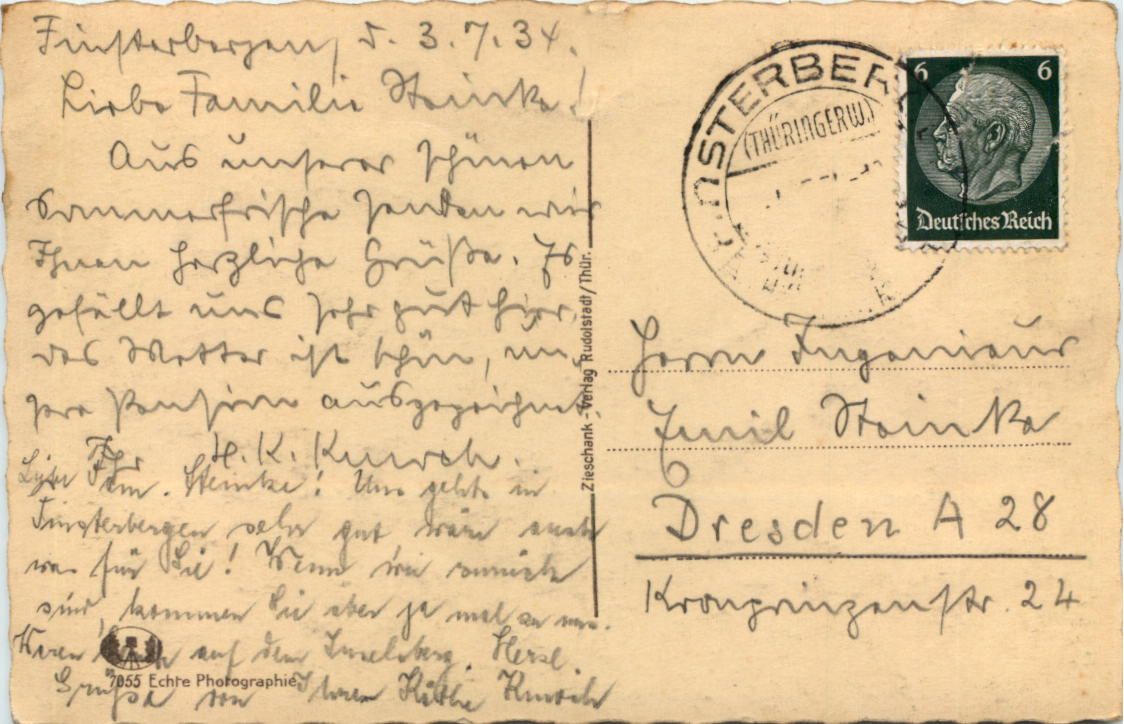 Finsterbergen, d. 3.7.34.
Liebe Familie Steinke!
Aus unserer schönen
Sommerfrische senden wir
Ihnen herzliche Grüße. Es
gefällt uns sehr gut hier,
das Wetter ist schön, un-
sere Pension ausgezeichnet.
Ihr H. K.
Fam. Steinke! Uns gehts in
Finsterbergen sehr gut wäre auch
was für Sie! Wenn wir zurück
sind, kommen Sie aber ja mal zu uns.
Waren auch auf dem Inselsberg. Herzl.
Grüße von Ihrer Käthe
7055 Echte Photographie
Zieschank-Verlag Rudolstadt/Thür.
FINSTERBERGEN
(THÜRINGERW.)
6 6
Deutsches Reich
Herrn Ingenieur
Emil Steinke
Dresden A 28
Kronprinzenstr. 24